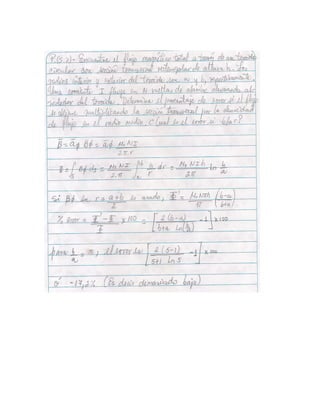 P(5.7)- Encuentre el flujo magnético total a través de un toroide
circular con sección transversal rectangular de altura h. Los
radios interior y exterior del toroide son a y b, respectivamente.
Una corriente I fluye en N vueltas de alambre devanado al-
rededor del toroide. Determine el porcentaje de error si el flujo
se obtiene multiplicando la sección transversal por la densidad
de flujo en el radio medio. ¿Cual es el error si b/a=
B̄ = āφ Bφ = āφ μ₀NI / 2πr
Φ = ∫ₛ Bφ ds = μ₀NI / 2π ∫ₐᵇ h/r dr = μ₀NIh / 2π ln b/a
Si Bφ en r = a+b / 2 es usado, Φ' = μ₀NIh / π (b-a / b+a)
% error = Φ' - Φ / Φ x100 = [2(b-a) / b+a ln(b/a) - 1] x100
para b/a = 5, el error es [2(5-1) / 5+1 ln 5 - 1] x100
ó -17,2% (Es decir demasiado bajo)